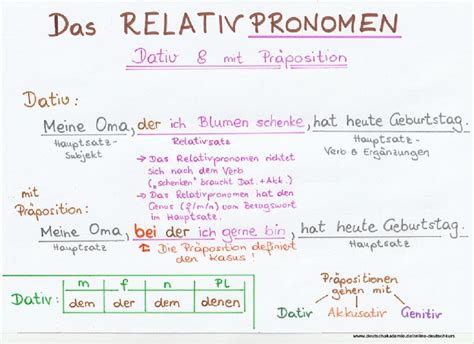 Das RELATIVPRONOMEN
Dativ & mit Präposition
Dativ:
Meine Oma, der ich Blumen schenke, hat heute Geburtstag.
Hauptsatz- Relativsatz Hauptsatz-
Subjekt Verb & Ergänzungen
→ Das Relativpronomen richtet
sich nach dem Verb
("schenken" braucht Dat. + Akk.)
→ Das Relativpronomen hat den
Genus (f/m/n) vom Bezugswort
im Hauptsatz.
mit
Präposition:
Meine Oma, bei der ich gerne bin, hat heute Geburtstag.
Hauptsatz Hauptsatz
! Die Präposition definiert
den Kasus!
m f n Pl
Dativ: dem der dem denen
Präpositionen
gehen mit
Dativ Akkusativ Genitiv
www.deutschakademie.de/online-deutschkurs